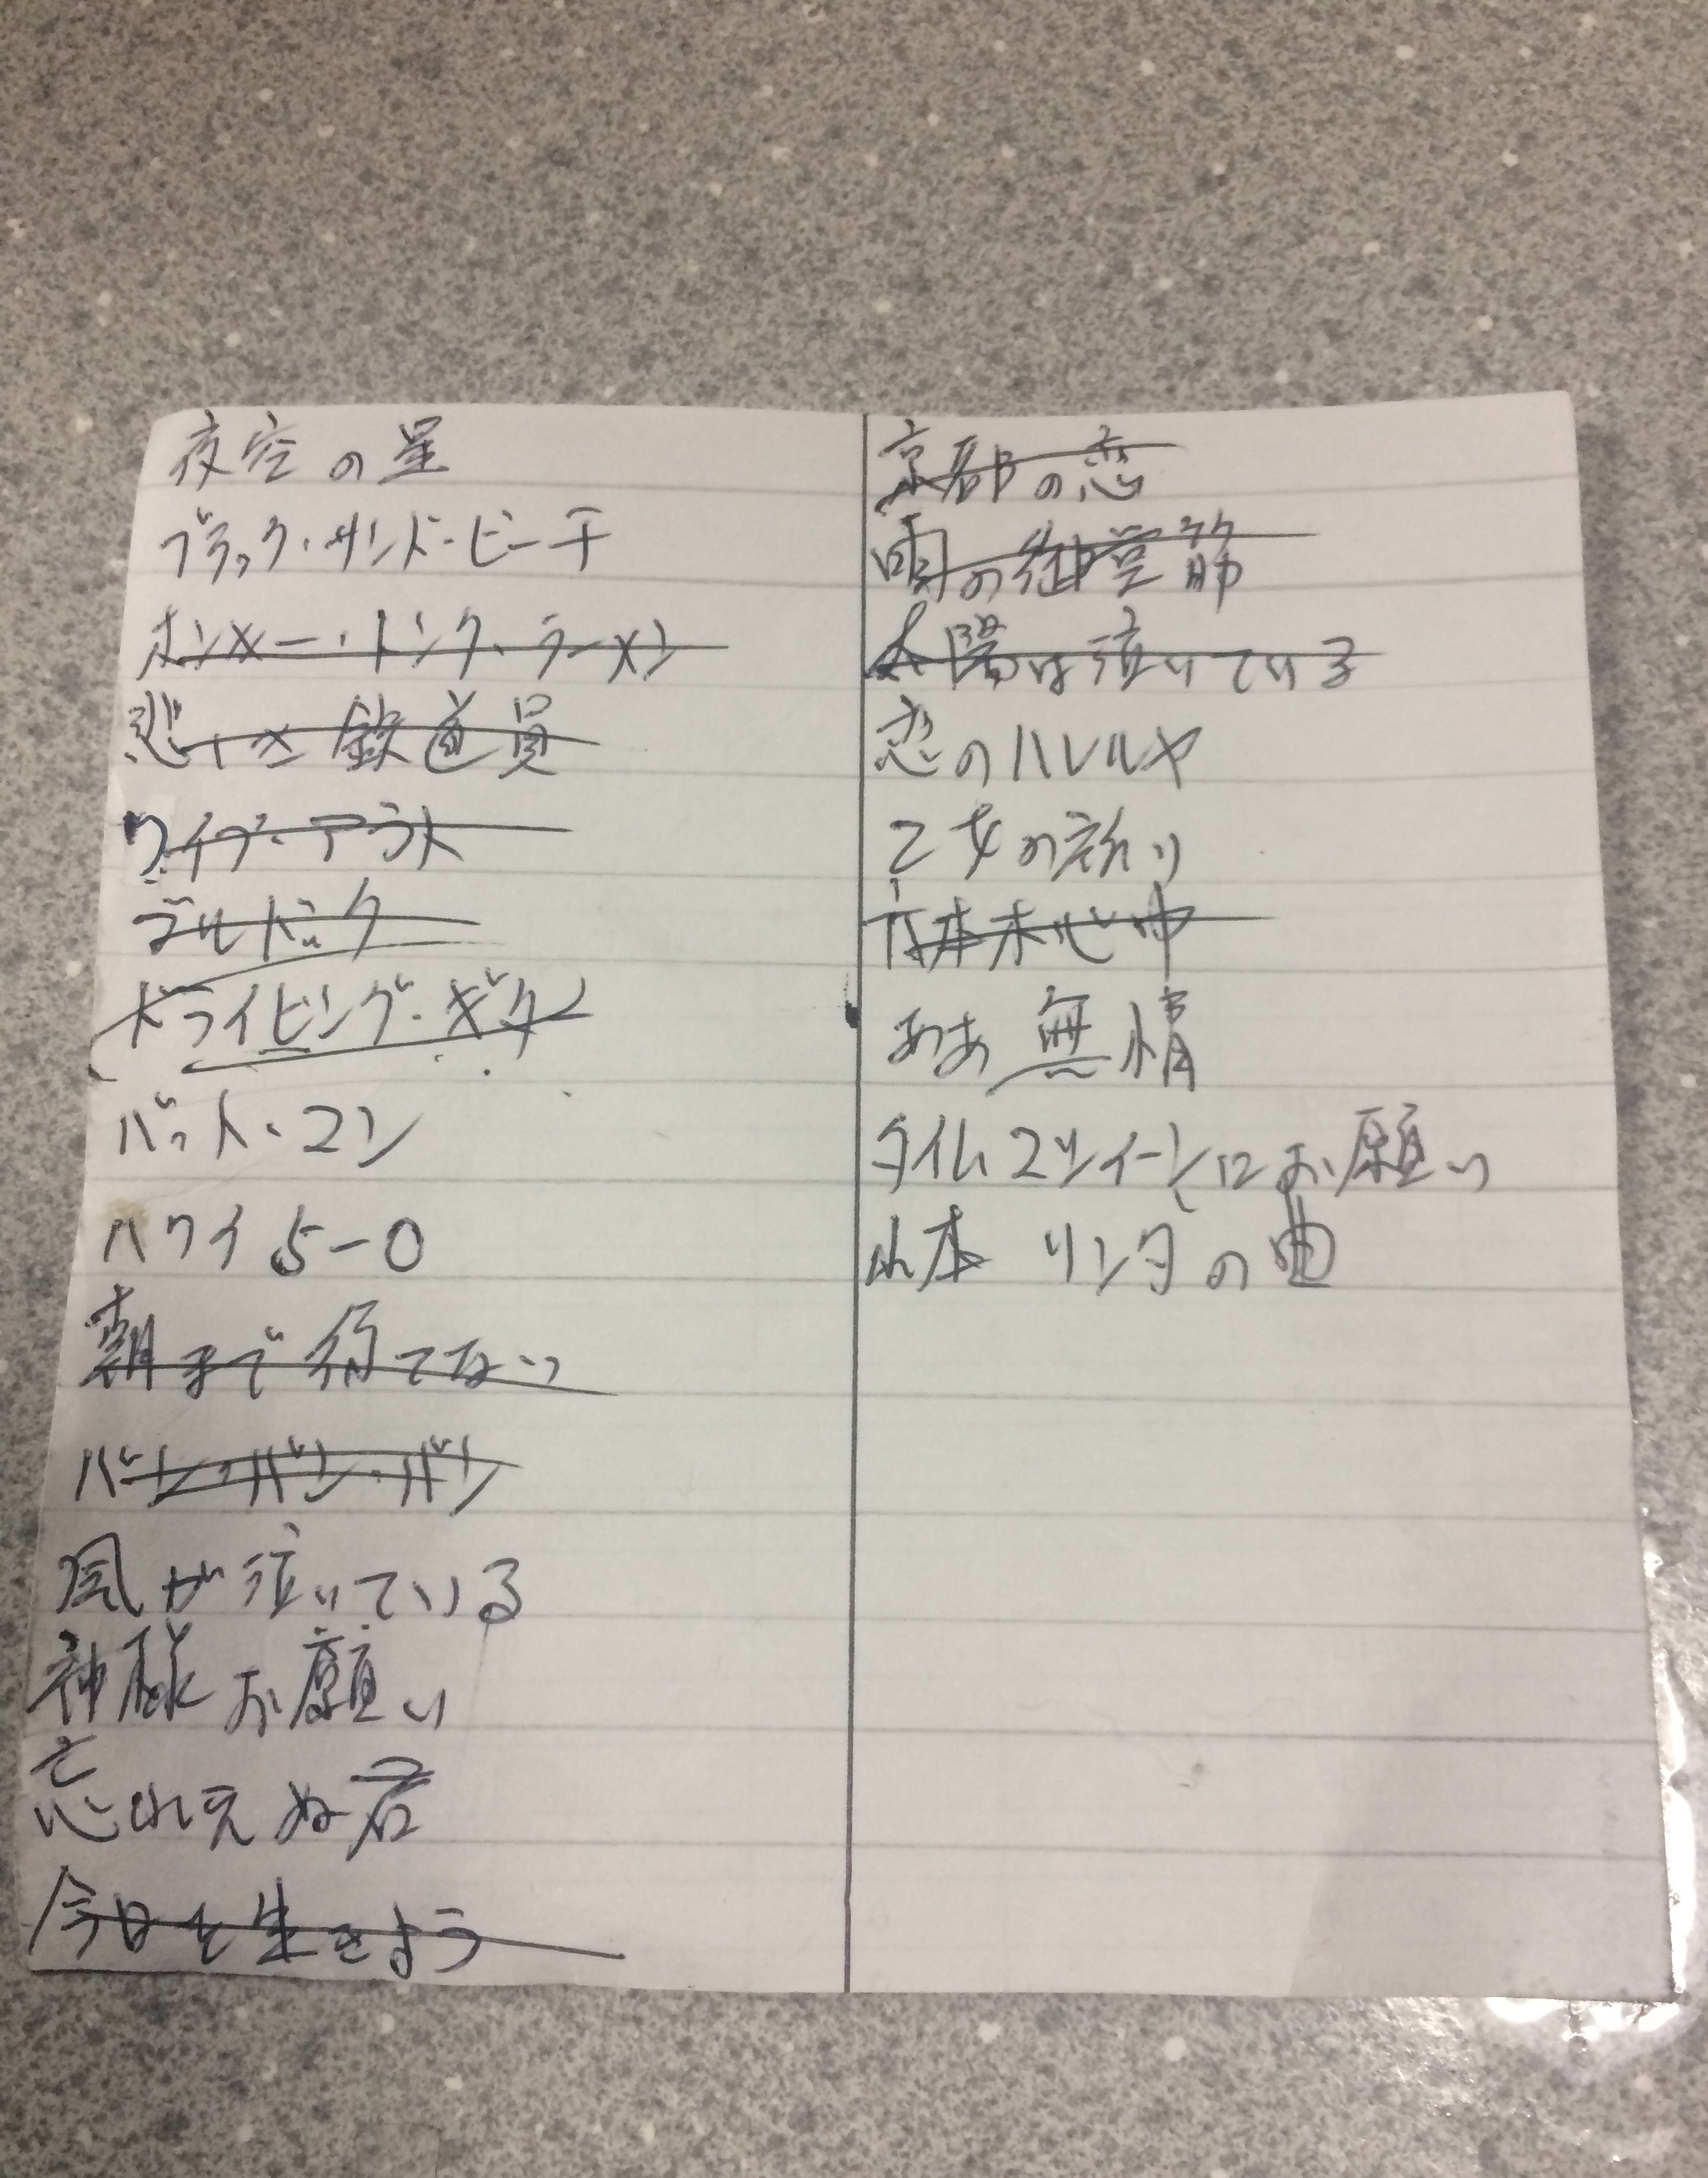 夜空の星
ブラック・サンド・ビーチ
ホンキー・トンク・ラーメン
悲しき鉄道員
ワイプ・アウト
ブルドック
ドライビング・ギター
バットマン
ハワイ5-0
朝まで待てない
バン・バン・バン
風が泣いている
神様お願い
忘れえぬ君
今日を生きよう
京都の恋
雨の御堂筋
太陽は泣いている
恋のハレルヤ
乙女の祈り
六本木心中
ああ無情
タイムマシーンにお願い
山本リンダの曲